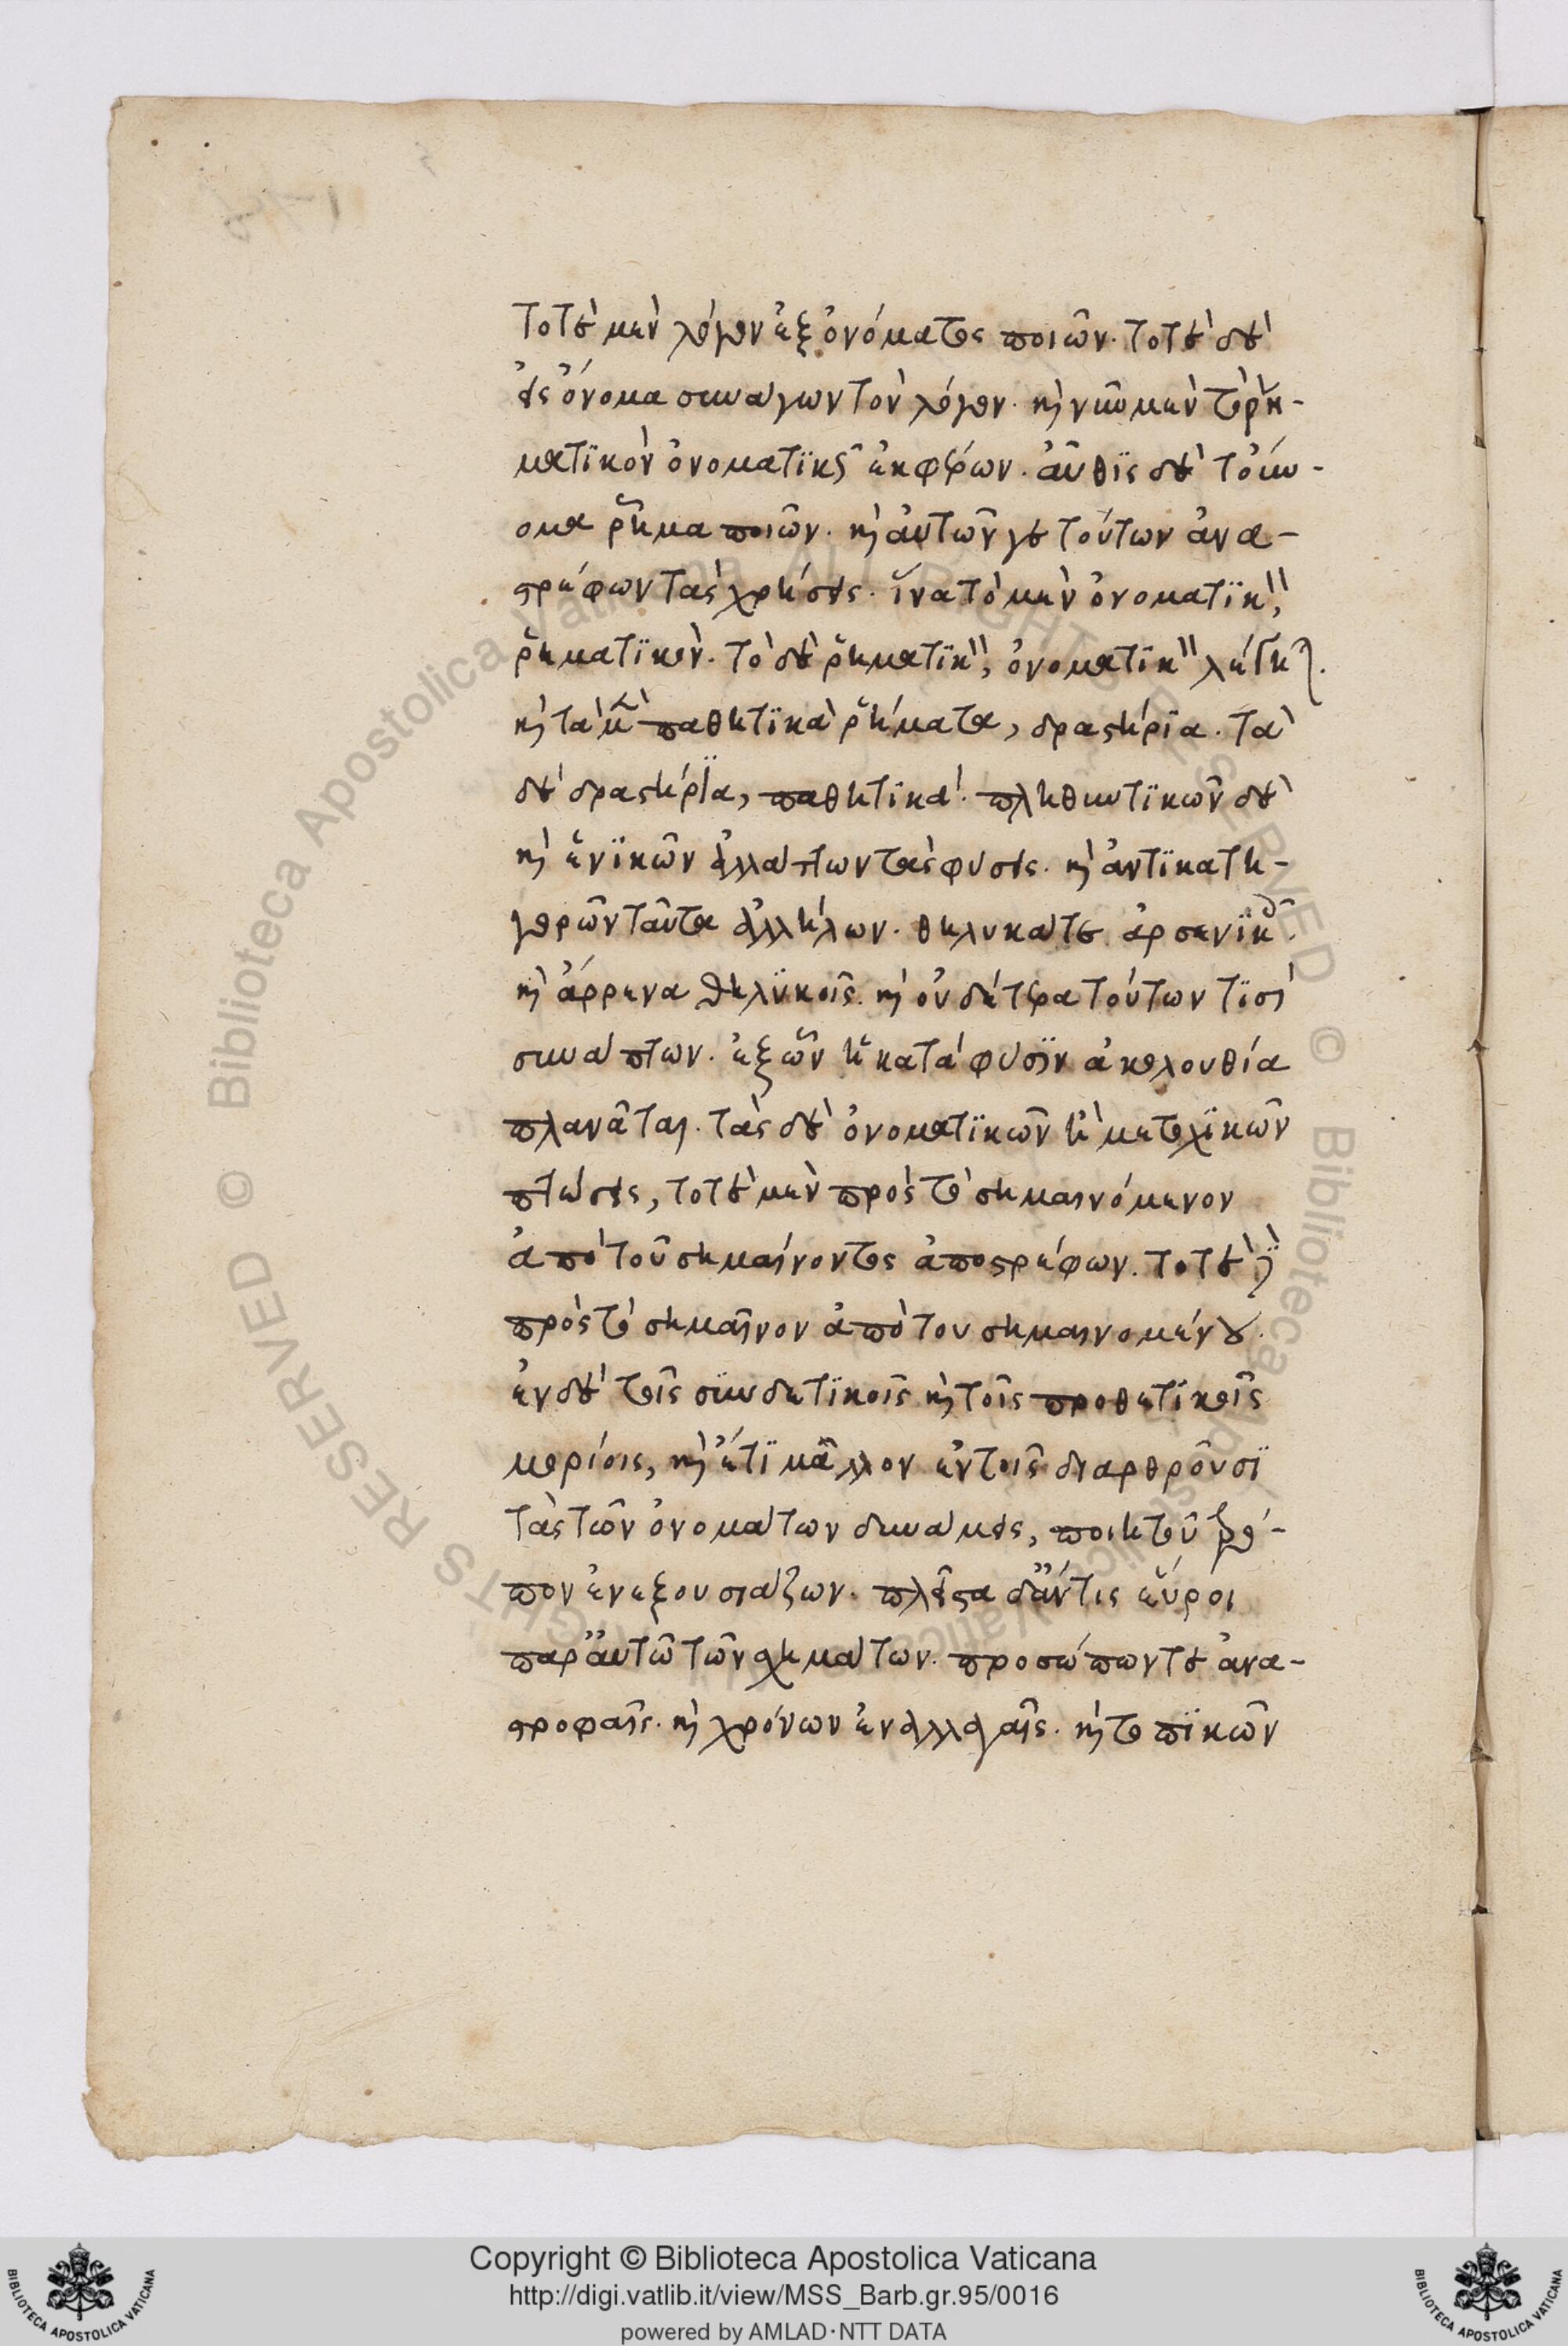 τοτὲ μὲν λόγον ἐξ ὀνόματος ποιῶν. τοτὲ δὲ
εἰς ὄνομα συνάγων τὸν λόγον. κὶ νῦν μὲν τὸ ῥη-
ματϊκὸν ὀνοματϊκῶς ἐκφέρων. αὖθϊς δὲ τοὔν-
ομα ῥῆμα ποιῶν. κὶ αὐτῶν γε τούτων ἀνα-
στρέφων τὰς χρήσεις. ἵνα τὸ μὲν ὀνοματϊκὸν,
ῥηματϊκὸν. τὸ δὲ ῥηματϊκὸν, ὀνοματϊκὸν λέγηται.
κὶ τὰ μὲν παθητϊκὰ ῥήματα, δραστήρϊα. τὰ
δὲ δραστήρϊα, παθητϊκά. πληθυντϊκῶν δὲ
κὶ ἑνϊκῶν ἀλλάττων τὰς φύσεις. κὶ ἀντϊκατη-
γορῶν ταῦτα ἀλλήλων. θηλυκά τε ἀρσενϊκοῖς.
κὶ ἄρρενα θηλϋκοῖς. κὶ οὐδέτερα τούτων τϊσὶ
συνάπτων. ἐξ ὧν ἡ κατὰ φύσϊν ἀκολουθία
πλανᾶται. τὰς δὲ ὀνοματϊκῶν ἢ μετοχϊκῶν
πτώσεις, τοτὲ μὲν πρὸς τὸ σημαινόμενον
ἀπὸ τοῦ σημαίνοντος ἀποστρέφων. τοτὲ δὲ
πρὸς τὸ σημαῖνον ἀπὸ του σημαινομένου.
ἐν δὲ τοῖς συνδετϊκοῖς κὶ τοῖς προθετϊκοῖς
μορίοις, κὶ ἔτϊ μᾶλλον ἐν τοῖς διαρθροῦσϊ
τὰς τῶν ὀνομάτων δυνάμεις, ποιητοῦ τρό-
πον ἐνεξουσιάζων. πλεῖστα δ' ἄν τις εὕροι
παρ' αὐτῶ τῶν σχημάτων. προσώπων τε ἀνα-
στροφαῖς. κὶ χρόνων ἐναλλαγαῖς. κὶ τοπϊκῶν
Copyright © Biblioteca Apostolica Vaticana
http://digi.vatlib.it/view/MSS_Barb.gr.95/0016
powered by AMLAD·NTT DATA